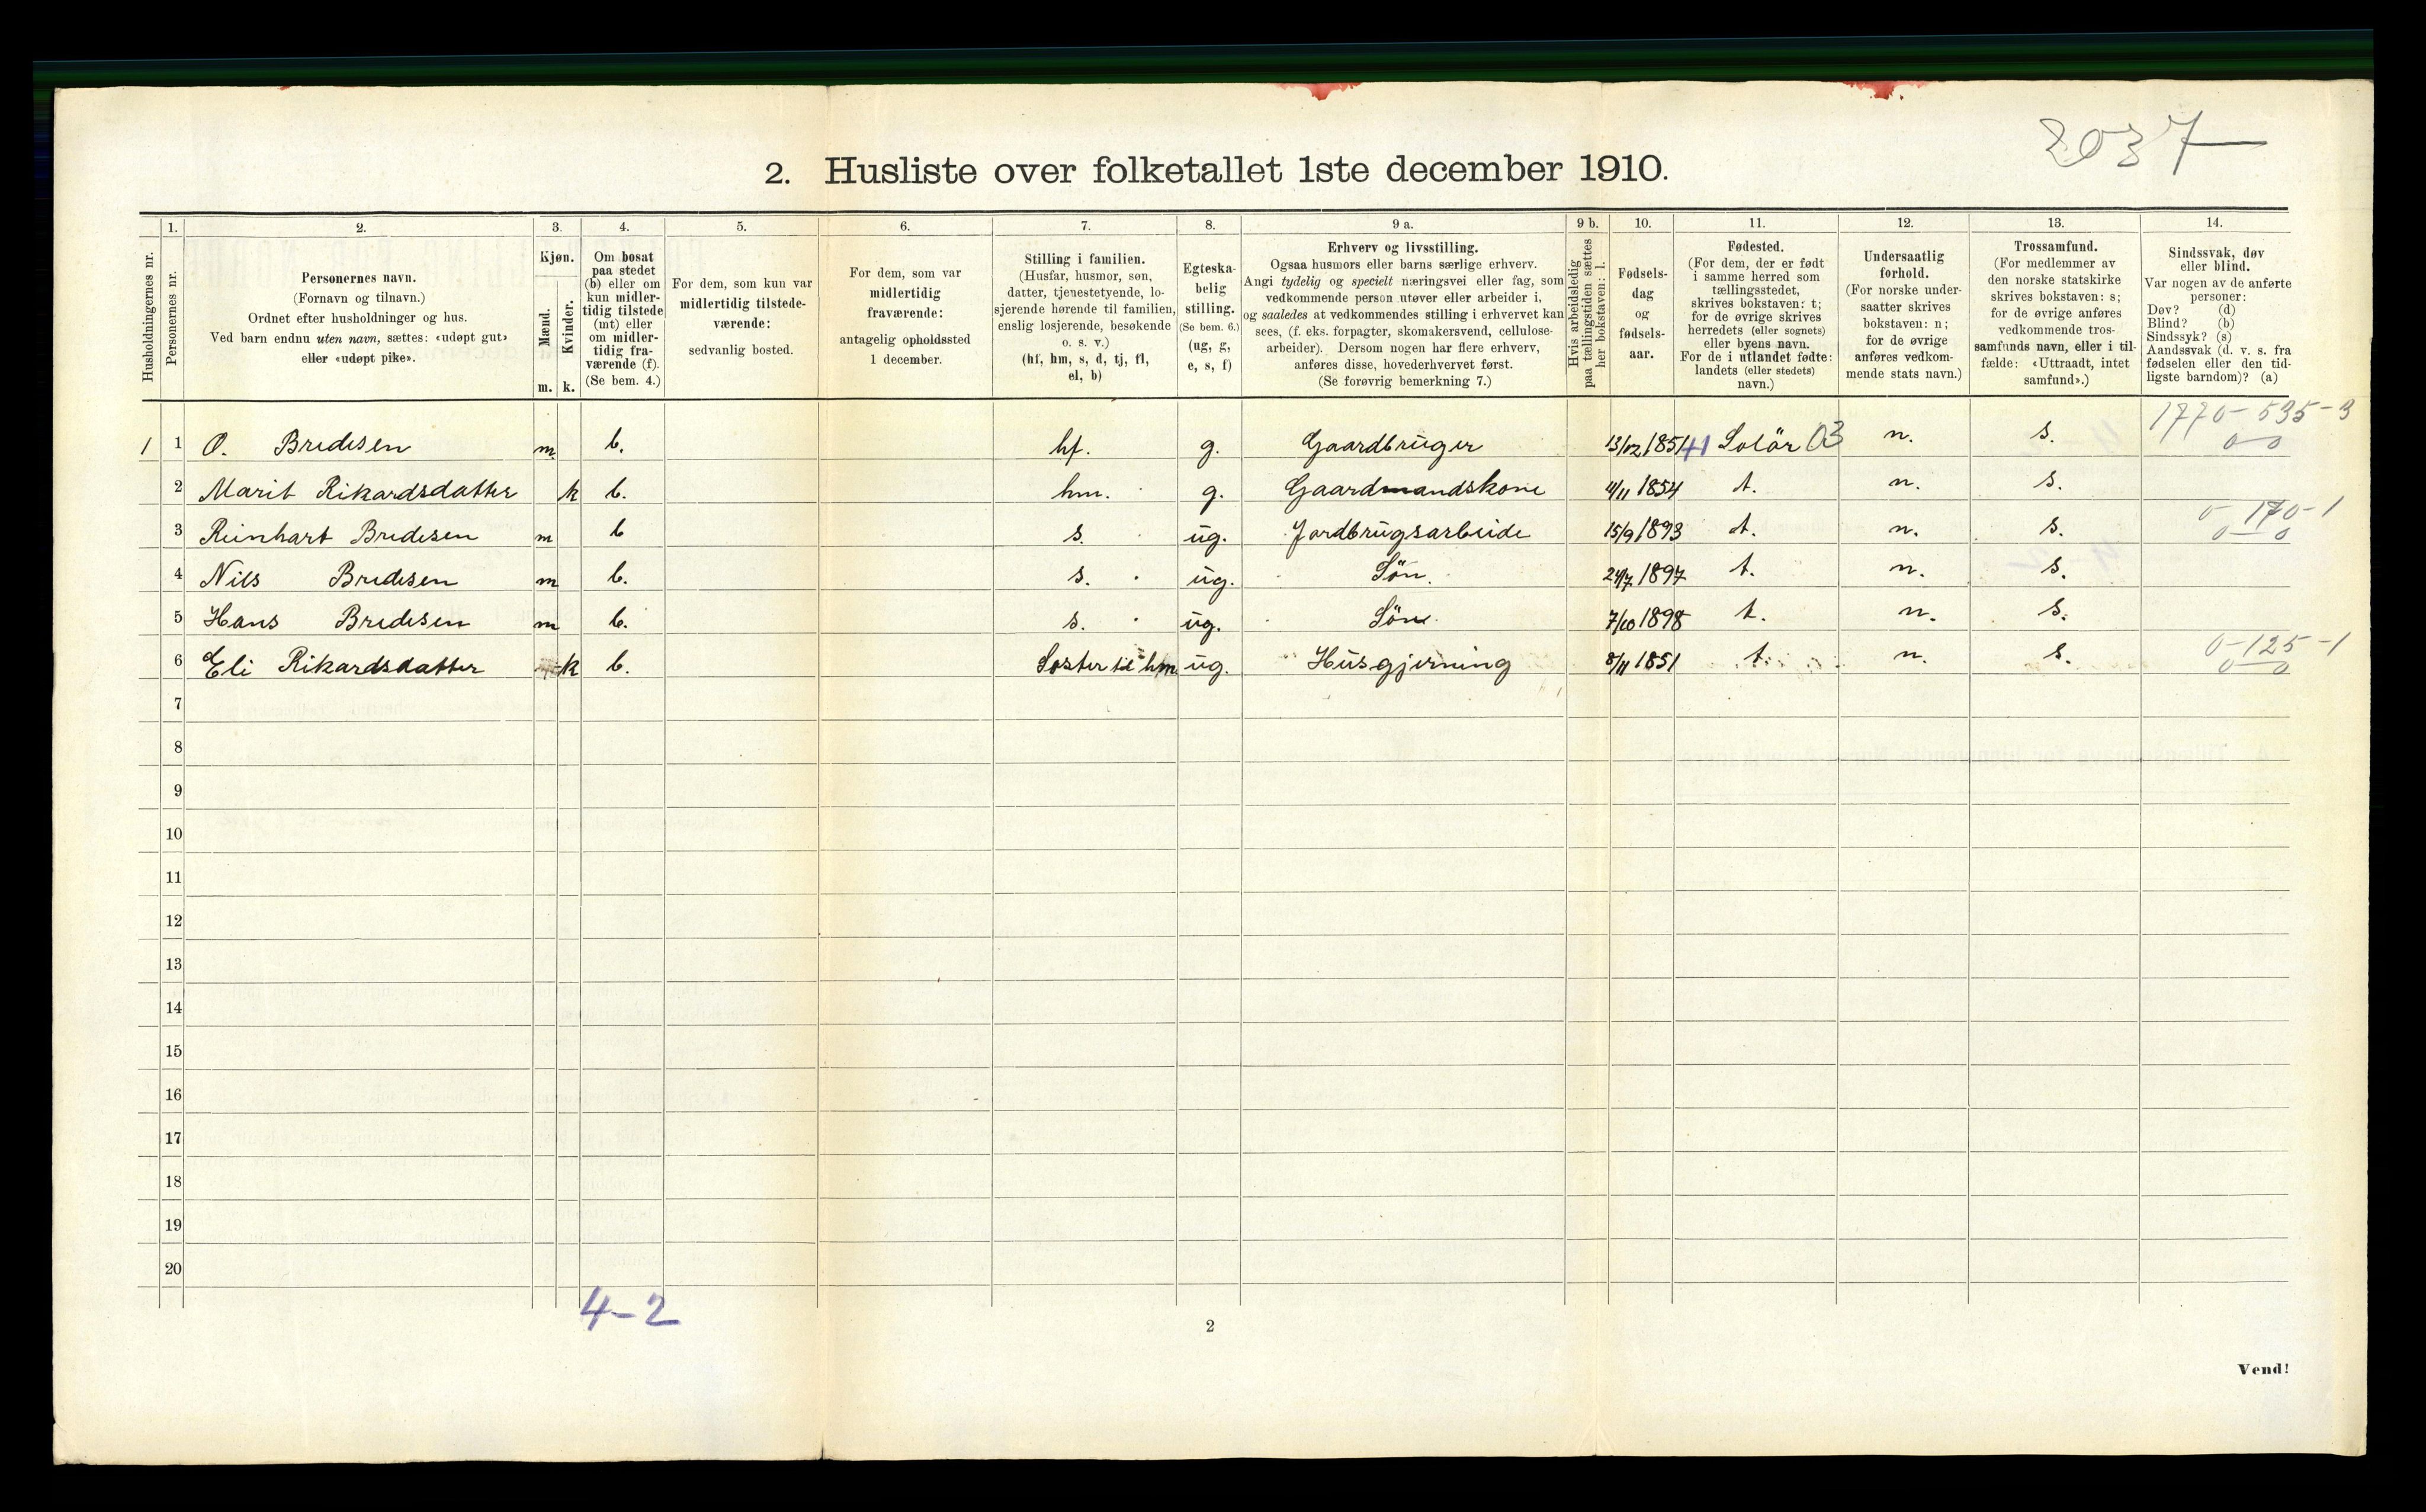 2037
2. Husliste over folketallet 1ste december 1910.
Husholdningernes nr.
1.
Personernes nr.
2.
Personernes navn.
(Fornavn og tilnavn.)
Ordnet efter husholdninger og hus.
Ved barn endnu uten navn, sættes: «udøpt gut»
eller «udøpt pike».
3.
Kjøn.
Mænd.
Kvinder.
m. k.
4.
Om bosat
paa stedet
(b) eller om
kun midler-
tidig tilstede
(mt) eller
om midler-
tidig fra-
værende (f).
(Se bem. 4.)
5.
For dem, som kun var
midlertidig tilstede-
værende:
sedvanlig bosted.
6.
For dem, som var
midlertidig
fraværende:
antagelig opholdssted
1 december.
7.
Stilling i familien.
(Husfar, husmor, søn,
datter, tjenestetyende, lo-
sjerende hørende til familien,
enslig losjerende, besøkende
o. s. v.)
(hf, hm, s, d, tj, fl,
el, b)
8.
Egteska-
belig
stilling.
(Se bem. 6.)
(ug, g,
e, s, f)
9 a.
Erhverv og livsstilling.
Ogsaa husmors eller barns særlige erhverv.
Angi tydelig og specielt næringsvei eller fag, som
vedkommende person utøver eller arbeider i,
og saaledes at vedkommendes stilling i erhvervet kan
sees, (f. eks. forpagter, skomakersvend, cellulose-
arbeider). Dersom nogen har flere erhverv,
anføres disse, hovederhvervet først.
(Se forøvrig bemerkning 7.)
9 b.
Hvis arbeidsledig
paa tællingstiden sættes
her bokstaven: l.
10.
Fødsels-
dag
og
fødsels-
aar.
11.
Fødested.
(For dem, der er født
i samme herred som
tællingsstedet,
skrives bokstaven: t;
for de øvrige skrives
herredets (eller sognets)
eller byens navn.
For de i utlandet fødte:
landets (eller stedets)
navn.)
12.
Undersaatlig
forhold.
(For norske under-
saatter skrives
bokstaven: n;
for de øvrige
anføres vedkom-
mende stats navn.)
13.
Trossamfund.
(For medlemmer av
den norske statskirke
skrives bokstaven: s;
for de øvrige anføres
vedkommende tros-
samfunds navn, eller i til-
fælde: «Uttraadt, intet
samfund».)
14.
Sindssvak, døv
eller blind.
Var nogen av de anførte
personer:
Døv? (d)
Blind? (b)
Sindssyk? (s)
Aandssvak (d. v. s. fra
fødselen eller den tid-
ligste barndom)? (a)
1 1 O. Bredesen m. b. hf. g. Gaardbruger 13/12 1851 41 Solör 03 n. s. 1770-535-3
0-0
2 Marit Rikardsdatter k b. hm. g. Gaardmandskone 4/11 1854 t. n. s.
3 Reinhart Bredesen m b s. ug. Jordbrugsarbeide 15/9 1893 t. n. s. 0-170-1
0-0
4 Nils Bredesen m b. s. ug. Sön. 24/7 1897 t. n. s.
5 Hans Bredesen m b. s. ug. Sön 7/10 1898 t. n. s.
6 Eli Rikardsdatter k b. Søster til hm ug. Husgjerning 8/11 1851 t. n. s. 0-125-1
0-0
7
8
9
10
11
12
13
14
15
16
17
18
19
20
4-2
2
Vend!